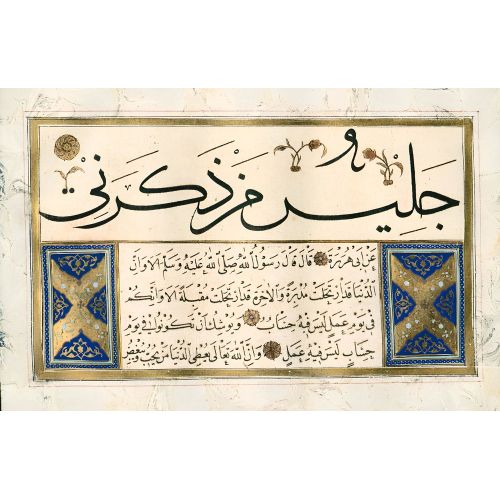 و جَلِيسُ مَنْ ذَكَرَنِى
عَنْ اَبِى هُرَيْرَةَ قَالَ قَالَ رَسُولُ اللهِ صَلَّى اللهُ عَلَيْهِ وَسَلَّمَ اَلَا وَاِنَّ
الدُّنْيَا قَدِ ارْتَحَلَتْ مُدْبِرَةً وَالْاخِرَةَ قَدِ ارْتَحَلَتْ مُقْبِلَةً اَلَا وَاِنَّكُمْ
فِى يَوْمِ عَمَلٍ لَيْسَ فِيهِ حِسَابٌ وَيُوشِكُ اَنْ تَكُونُوا فِى يَوْمِ
حِسَابٍ لَيْسَ فِيهِ عَمَلٌ وَاِنَّ اللهَ تَعَالَى يُعْطِى الدُّنْيَا مَنْ يُحِبُّ وَيُبْغِضُ